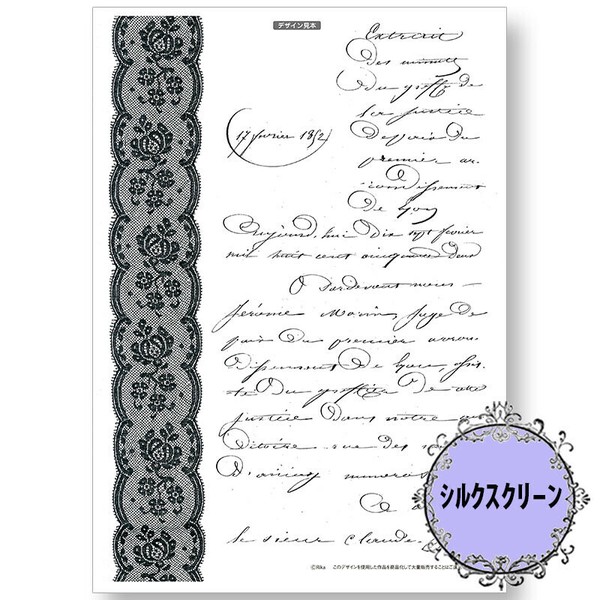 デザイン見本
Extrait
des minutes
du greffe de
la justice
de paix du
premier ar-
rondissement
de Lyon
17 février 1852
Aujourd'hui dix sept février
mil huit cent cinquante deux
Pardevant nous
Jérôme Morin, juge de
paix du premier arron-
dissement de Lyon, assis-
té du greffier de
justice dans notre
rue des
d'
le sieur Claude
シルクスクリーン
©Rika このデザインを使用した作品を商品化して大量販売することはご